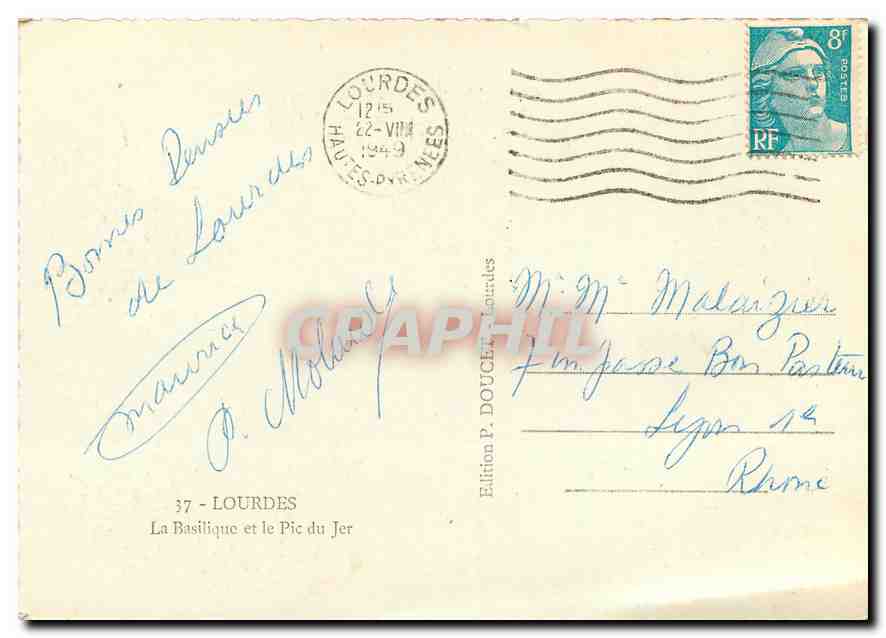 LOURDES
12
22-VIII
1949
HAUTES-PYRENEES
8F
POSTES
RF
Bonnes Pensées
de Lourdes
Maurice
CPAPHIL
37 - LOURDES
La Basilique et le Pic du Jer
Edition P. DOUCET, Lourdes
Mr Me Malaizier
7 impasse Bon Pasteur
Lyon 1er
Rhone